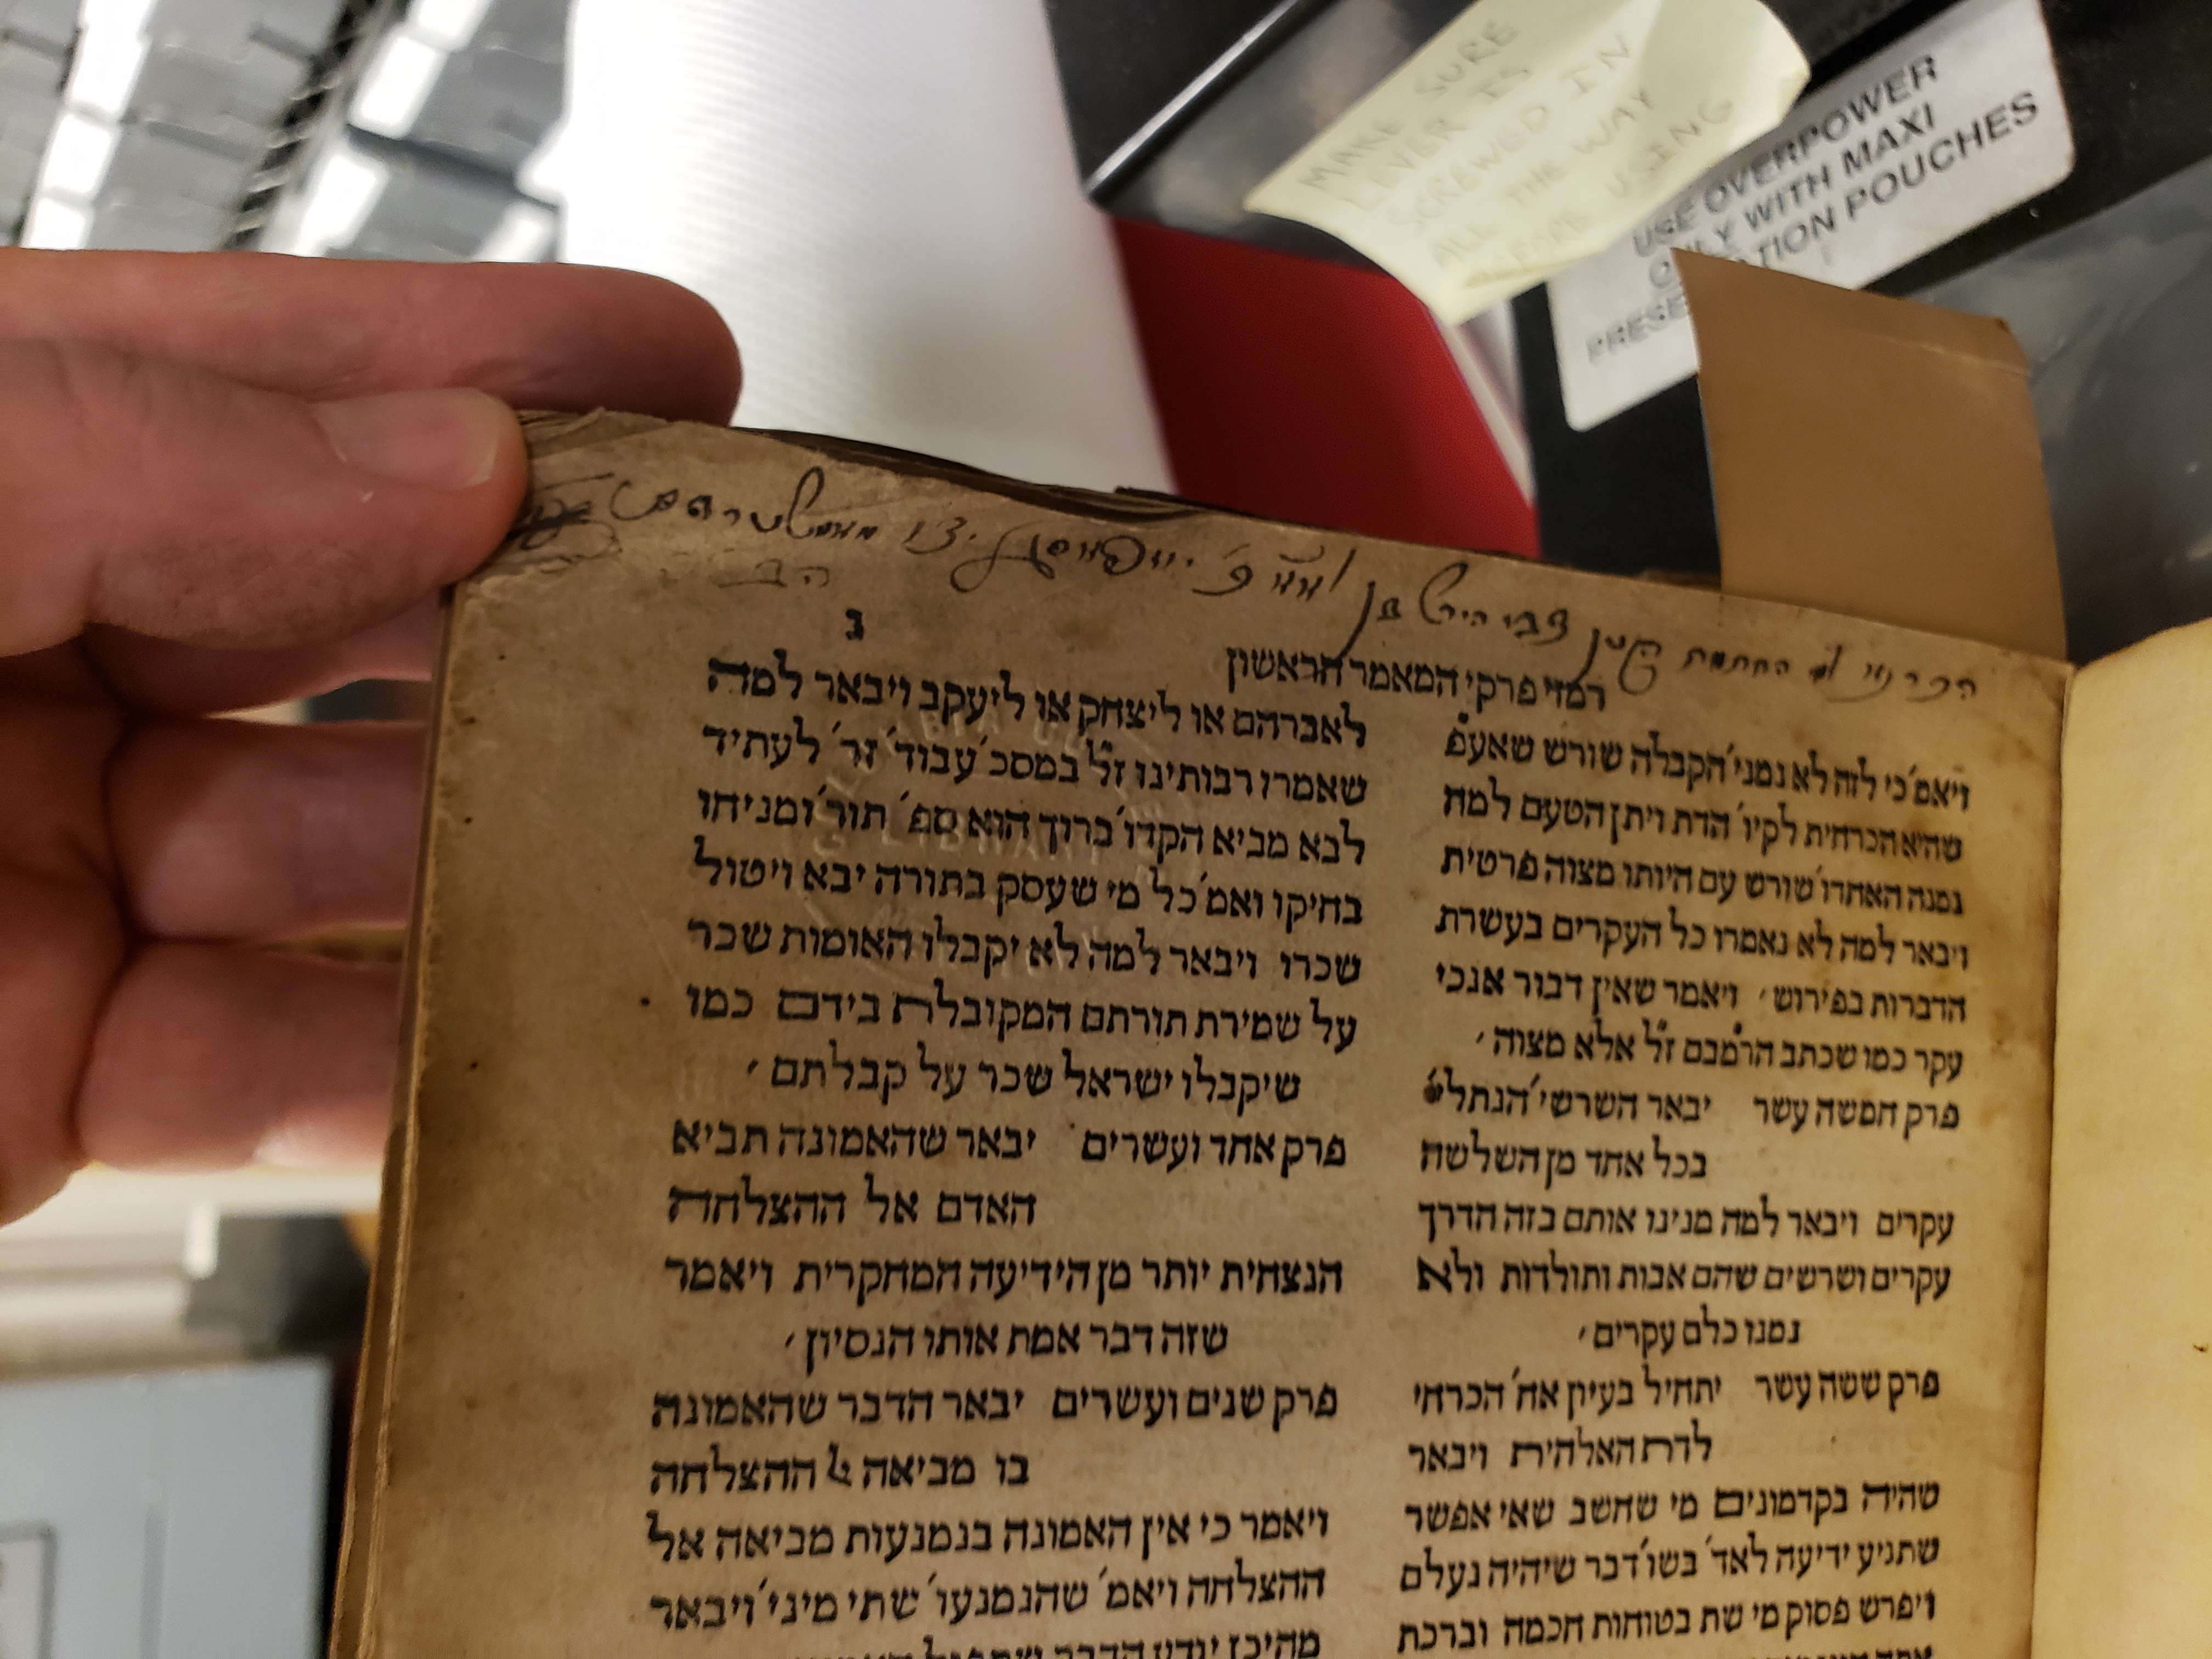 MAKE SURE
LEVER IS
SCREWED IN
ALL THE WAY
USING
USE OVERPOWER
ONLY WITH MAXI
PRESE TION POUCHES
צבי הירש בן
ג
רמזי פרקי המאמר הראשון
ויאמ' כי לזה לא נמני' הקבלה שורש שאעפ
שהיא הכרחית לקיו' הדת ויתן הטעם למה
נמנה האחדו' שורש עם היותו מצוה פרטית
ויבאר למה לא נאמרו כל העקרים בעשרת
הדברות בפירוש ' ויאמר שאין דבור אנכי
עקר כמו שכתב הרמבם זל אלא מצוה '
פרק חמשה עשר יבאר השרשי' הנתלי'
בכל אחד מן השלשה
עקרים ויבאר למה מנינו אותם בזה הדרך
עקרים ושרשים שהם אבות ותולדות ולא
נמנו כלם עקרים '
פרק ששה עשר יתחיל בעיון אח' הכרחי
לדת האלהית ויבאר
שהיה בקדמונים מי שחשב שאי אפשר
שתגיע ידיעה לאד' בשו' דבר שיהיה נעלם
ויפרש פסוק מי שת בטוחות חכמה וברכת
לאברהם או ליצחק או ליעקב ויבאר למה
שאמרו רבותינו זל במסכ' עבוד' זר' לעתיד
לבא מביא הקדו' ברוך הוא ספ' תור' ומניחו
בחיקו ואמ' כל מי שעסק בתורה יבא ויטול
שכרו ויבאר למה לא יקבלו האומות שכר
על שמירת תורתם המקובלת בידם כמו
שיקבלו ישראל שכר על קבלתם '
פרק אחד ועשרים יבאר שהאמונה תביא
האדם אל ההצלחה
הנצחית יותר מן הידיעה המחקרית ויאמר
שזה דבר אמת אותו הנסיון '
פרק שנים ועשרים יבאר הדבר שהאמונה
בו מביאה ההצלחה
ויאמר כי אין האמונה בנמנעות מביאה אל
ההצלחה ויאמ' שהנמנעו' שתי מיני' ויבאר
מהיכן יודע הדבר